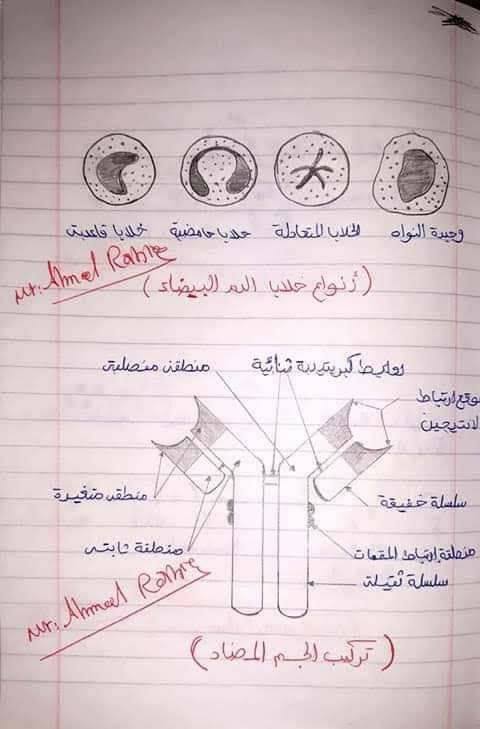 وحيدة النواه
الخلايا المتعادلة
خلايا حامضية
خلايا قاعدية
(أنواع خلايا الدم البيضاء)
Mr. Ahmed Rabie
روابط كبريتيدية ثنائية
منطقة مفصلية
موقع ارتباط
الانتيجين
منطقة متغيرة
سلسلة خفيفة
منطقة ثابتة
منطقة ارتباط المتممات
سلسلة ثقيلة
Mr. Ahmed Rabie
(تركيب الجسم المضاد)